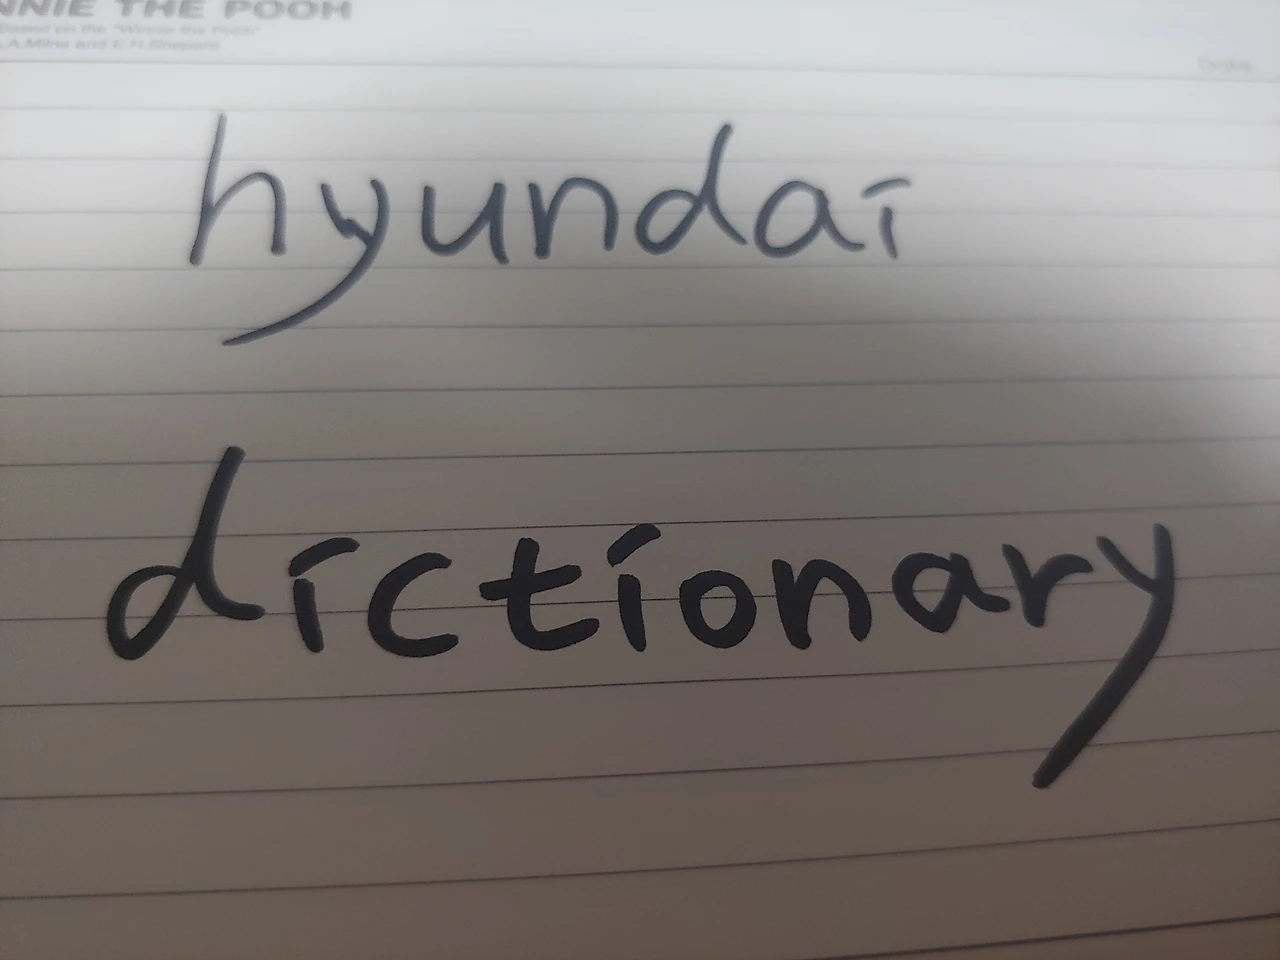 NNIE THE POOH
Based on the "Winnie the Pooh"
A.A.Milne and E.H.Shepard.
hyundai
dictionary